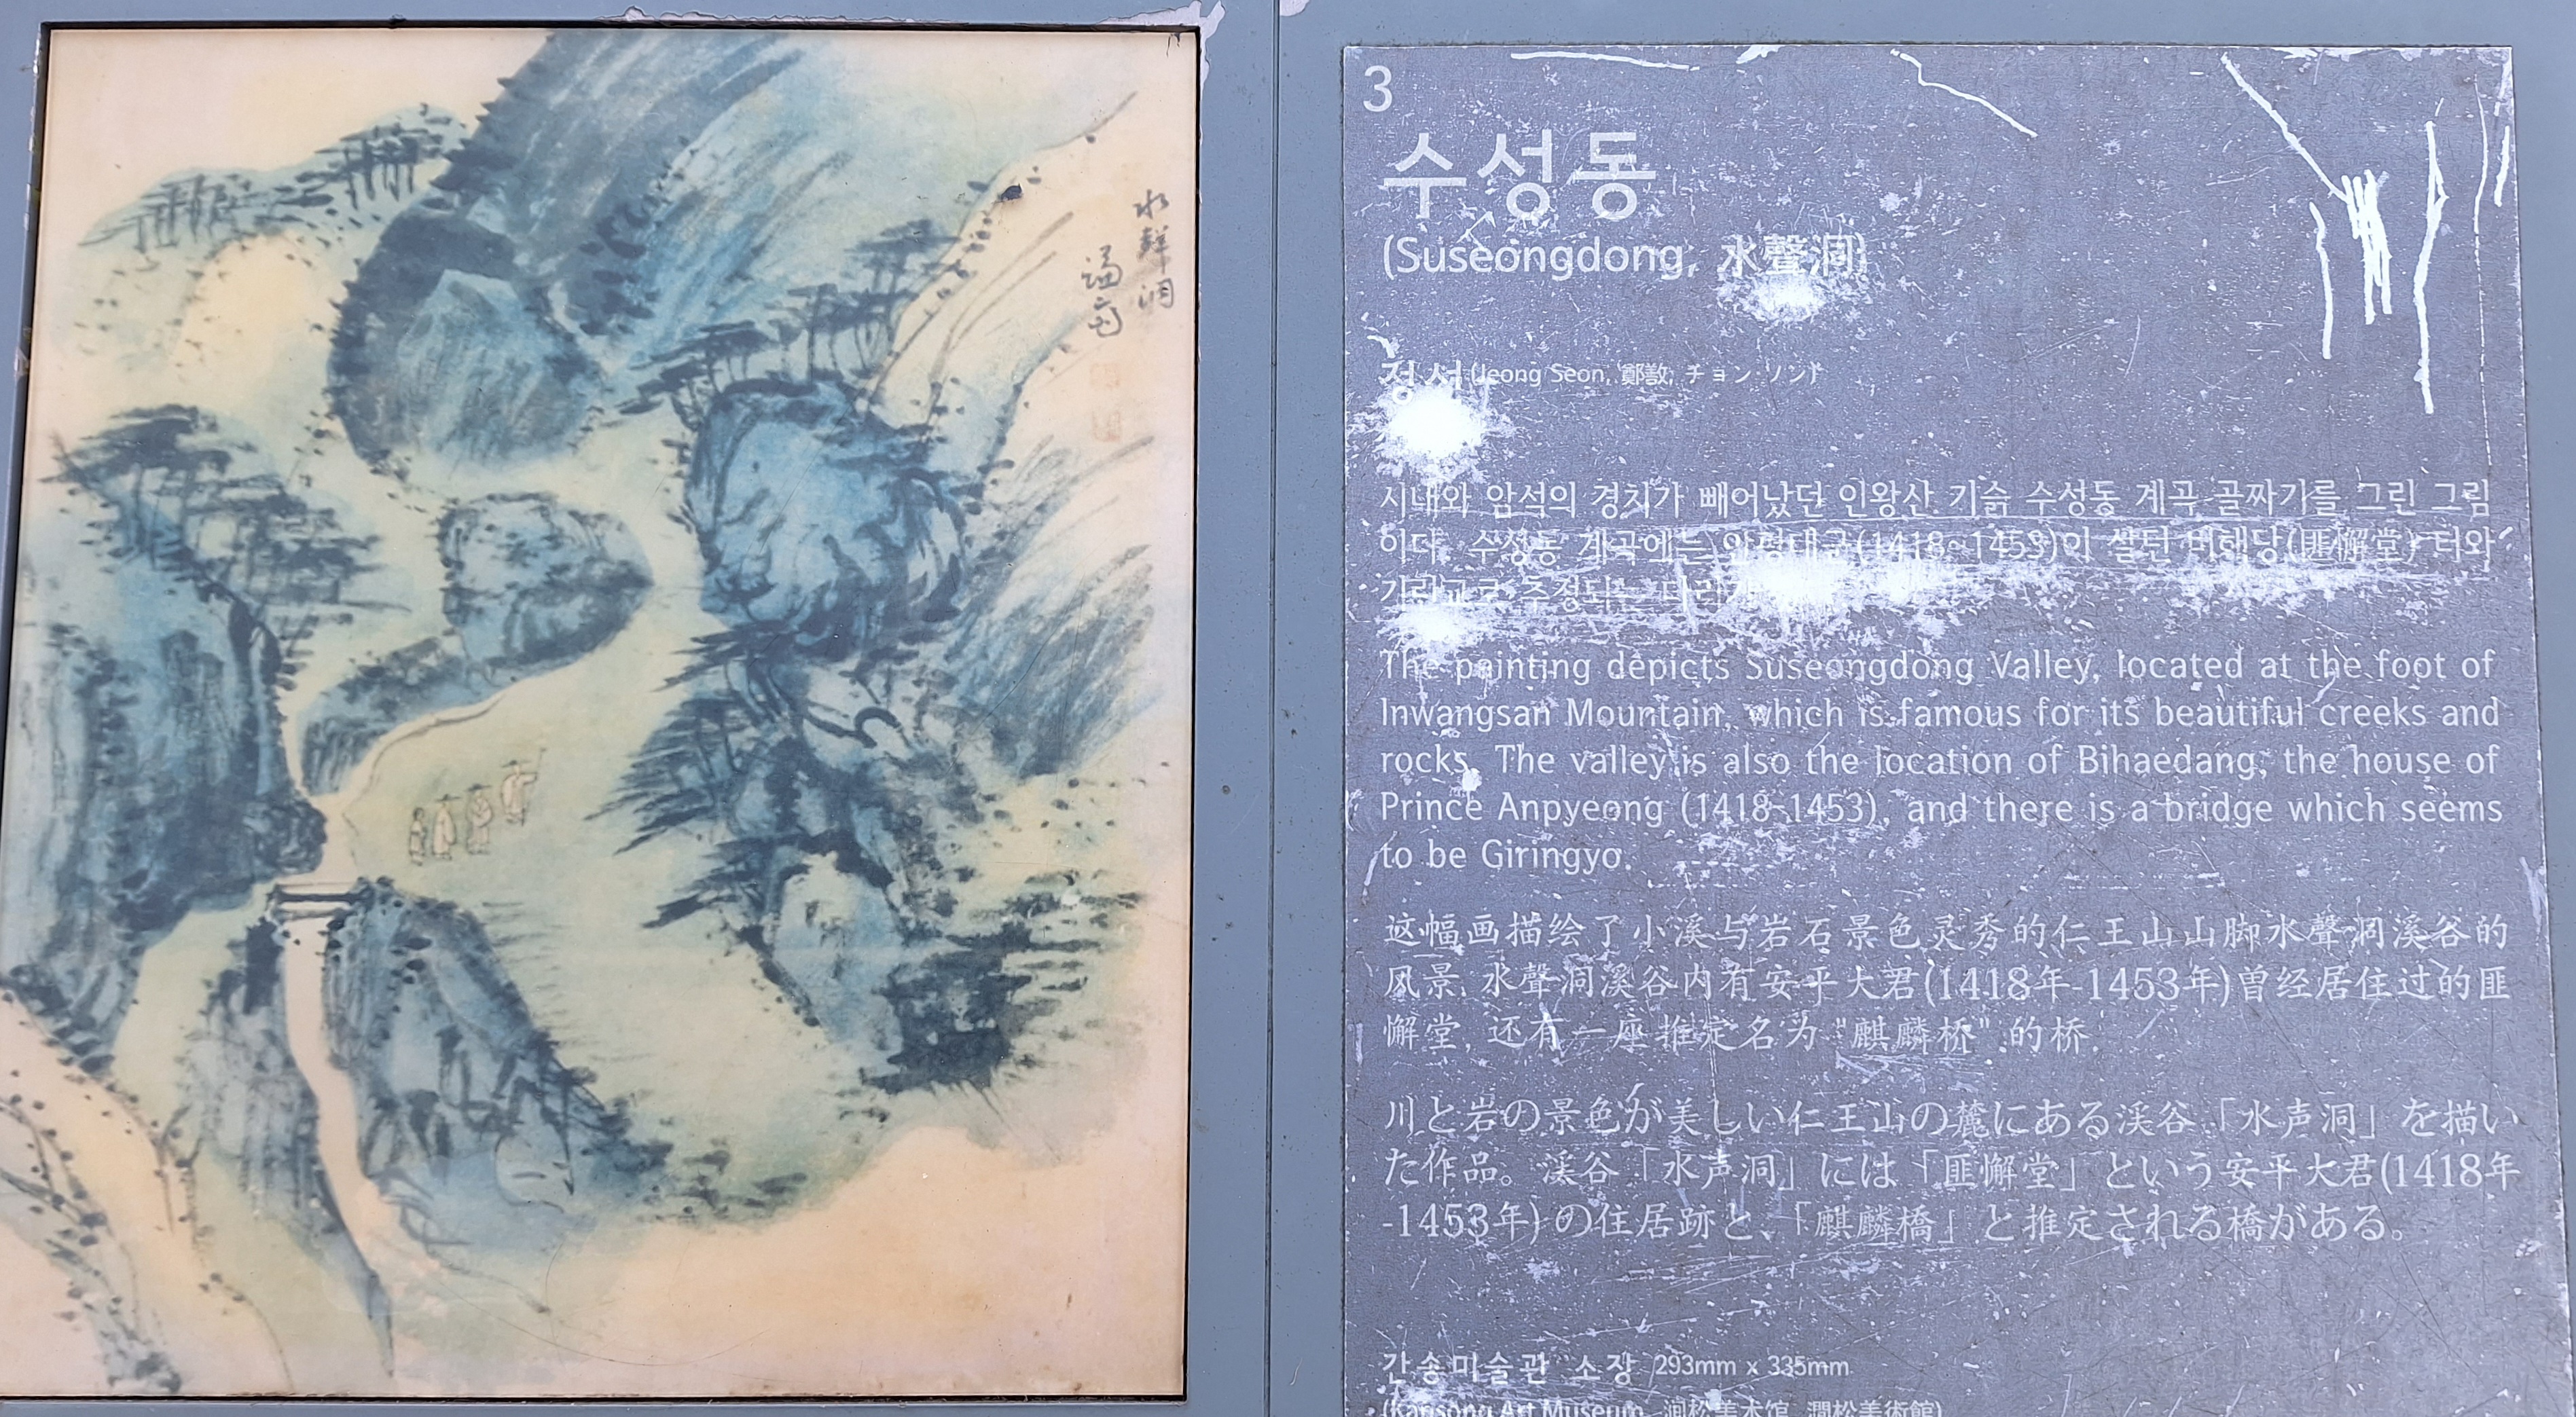 水聲洞
謙齋
3
수성동
(Suseongdong, 水聲洞)
정선 (Jeong Seon, 鄭敾, チョン·ソン)
시내와 암석의 경치가 빼어났던 인왕산 기슭 수성동 계곡 골짜기를 그린 그림
이다. 수성동 계곡에는 안평대군(1418~1453)이 살던 비해당(匪懈堂) 터와
기린교로 추정되는 다리가
The painting depicts Suseongdong Valley, located at the foot of
Inwangsan Mountain, which is famous for its beautiful creeks and
rocks. The valley is also the location of Bihaedang, the house of
Prince Anpyeong (1418~1453), and there is a bridge which seems
to be Giringyo.
这幅画描绘了小溪与岩石景色灵秀的仁王山山脚水聲洞溪谷的
风景. 水聲洞溪谷内有安平大君(1418年-1453年)曾经居住过的匪
懈堂, 还有一座推定名为 "麒麟桥" 的桥.
川と岩の景色が美しい仁王山の麓にある渓谷「水声洞」を描い
た作品。渓谷「水声洞」には「匪懈堂」という安平大君(1418年
-1453年)の住居跡と、「麒麟橋」と推定される橋がある。
간송미술관 소장 293mm x 335mm
(Kansong Art Museum, 涧松美术馆, 澗松美術館)